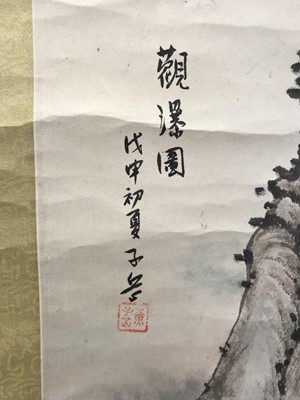 觀瀑圖
戊申初夏子谷